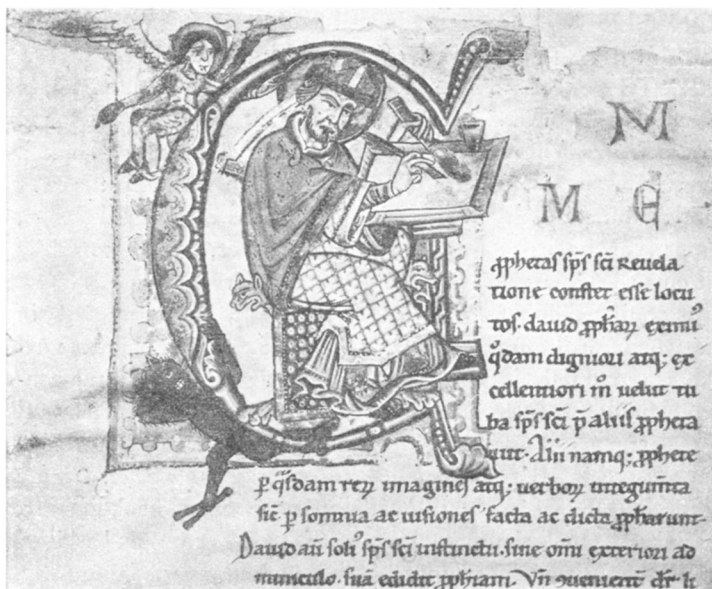 C
M
M E
ꝓphetas sp̄s sc̄i reuela
tione constet esse locu
tos. dauid ꝓphar̄ eximiꝰ
q̊dam digniori atq; ex
cellentiori m̊ uelut tu
ba sp̄s sc̄i p̄ aliis ꝓpheta
uit. Alii namq; ꝓphete
ꝑ q̊sdam reꝝ imagines atq; uerboꝝ integum̄ta
sic̄ ꝑ somnia ac uisiones facta ac dicta ꝓpharunt.
Dauid aū soliꝰ sp̄s sc̄i instinctu. sine om̄i exteriori ad
miniculo. suā edidit ꝓphiam. Vn̄ ꝯuenient̄ dr̄ li